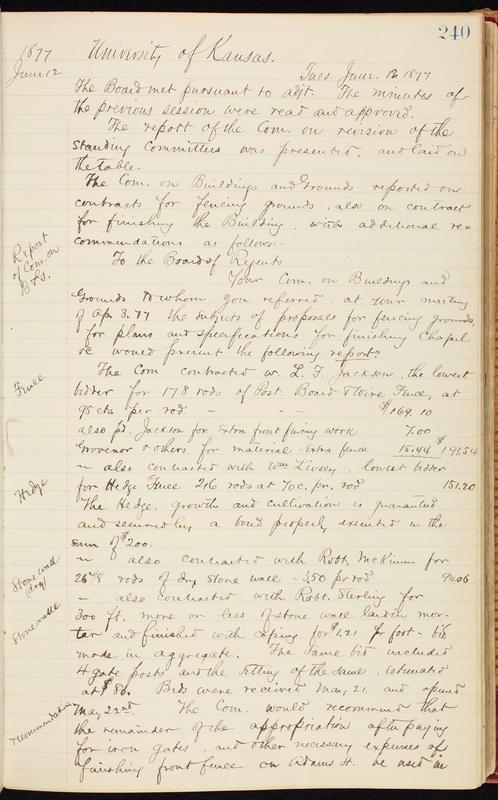 240
1877
June 12
University of Kansas.
Tues. June. 12, 1877
The Board met pursuant to adjt. The minutes of
the previous session were read and approved.
The report of the Com. on revision of the
Standing Committees was presented, and laid on
the table.
The Com. on Buildings and Grounds reported on
contracts for fencing grounds, also on contract
for finishing the Building, with additional re=
commendations as follows:-
Report
of Com. on
B & G.
To the Board of Regents
Your Com. on Buildings and
Grounds to whom you referred, at your meeting
of Ap 3. 77 the subjects of proposals for fencing grounds,
for plans and specifications for finishing Chapel
&c would present the following report:
Fence
The Com. contracted w. L. F. Jackson, the lowest
bidder for 178 rods of Post, Board & Wire Fence, at
95 cts per rod. - - - $169.10
also pd. Jackson for extra front fencing work 7.00
Grovenor & others for material - extra fence 15.44 $191.54
Hedge
~ also contracted with Wm Livsey, lowest bidder
for Hedge Fence 216 rods at 70c. pr. rod 151.20
The Hedge, growth and cultivation is guaranteed
and secured by a bond properly executed in the
sum of $200.
Stone wall
(dry)
~ also contracted with Robt. McKinnie for
rods of dry stone wall - 3.50 pr rod 94.06
Stone walls
~ also contracted with Robt. Sterling for
300 ft. more or less of stone wall laid in mor-
tar and finished with coping for $1.21 pr foot - bid
made in aggregate. The same bid included
4 gate posts and the setting of the same, estimated
at $86. Bids were received May 21, and opened
recommendation
May 22nd. The Com. would recommend that
the remainder of the appropriation after paying
for iron gates, and other necessary expenses of
finishing front fence on Adams St. be used in